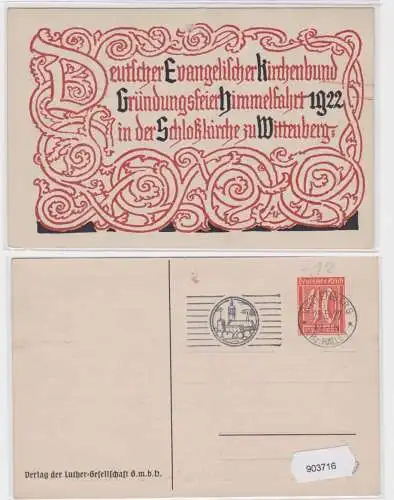 Deutscher Evangelischer Kirchenbund
Gründungsfeier Himmelfahrt 1922
in der Schloßkirche zu Wittenberg
12
Deutsches Reich
40
Verlag der Luther-Gesellschaft G.m.b.H.
903716